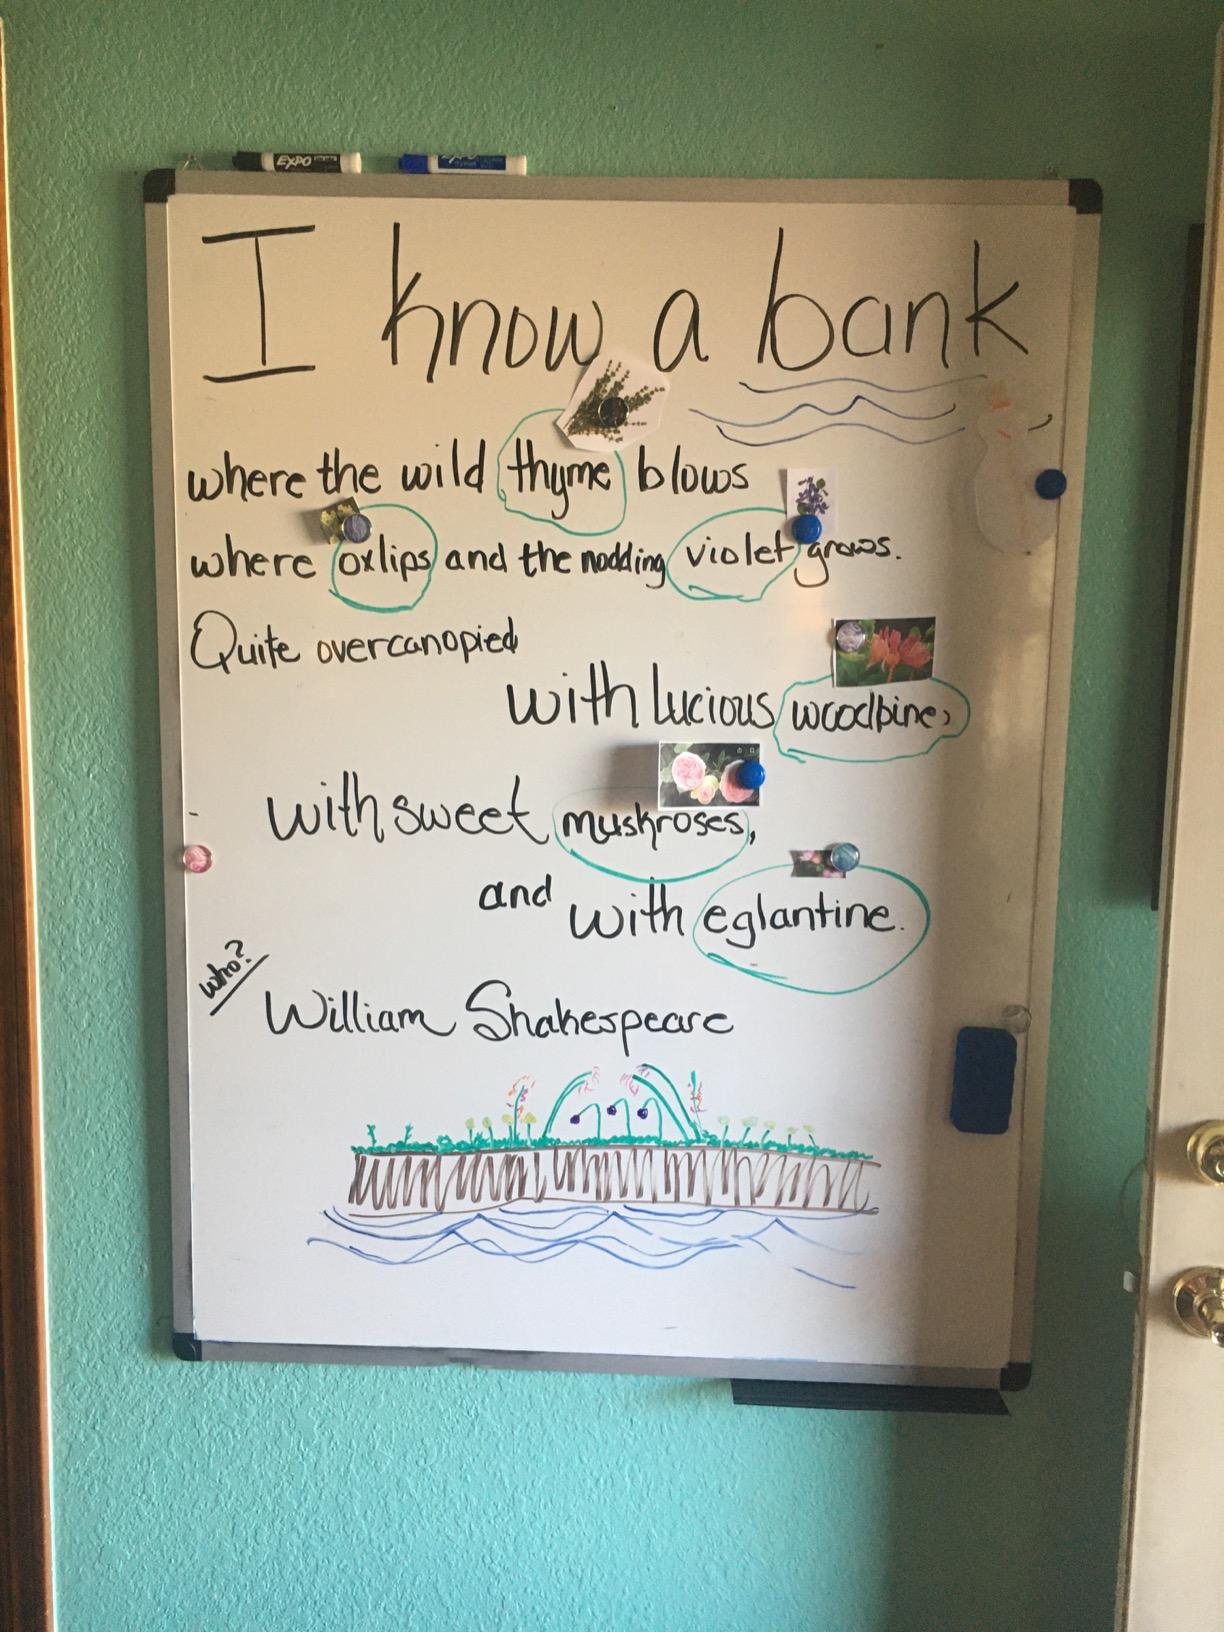 EXPO
EXPO
I know a bank
where the wild thyme blows
where oxlips and the nodding violet grows.
Quite overcanopied
with lucious woodbine,
with sweet muskroses,
and with eglantine.
who?
William Shakespeare